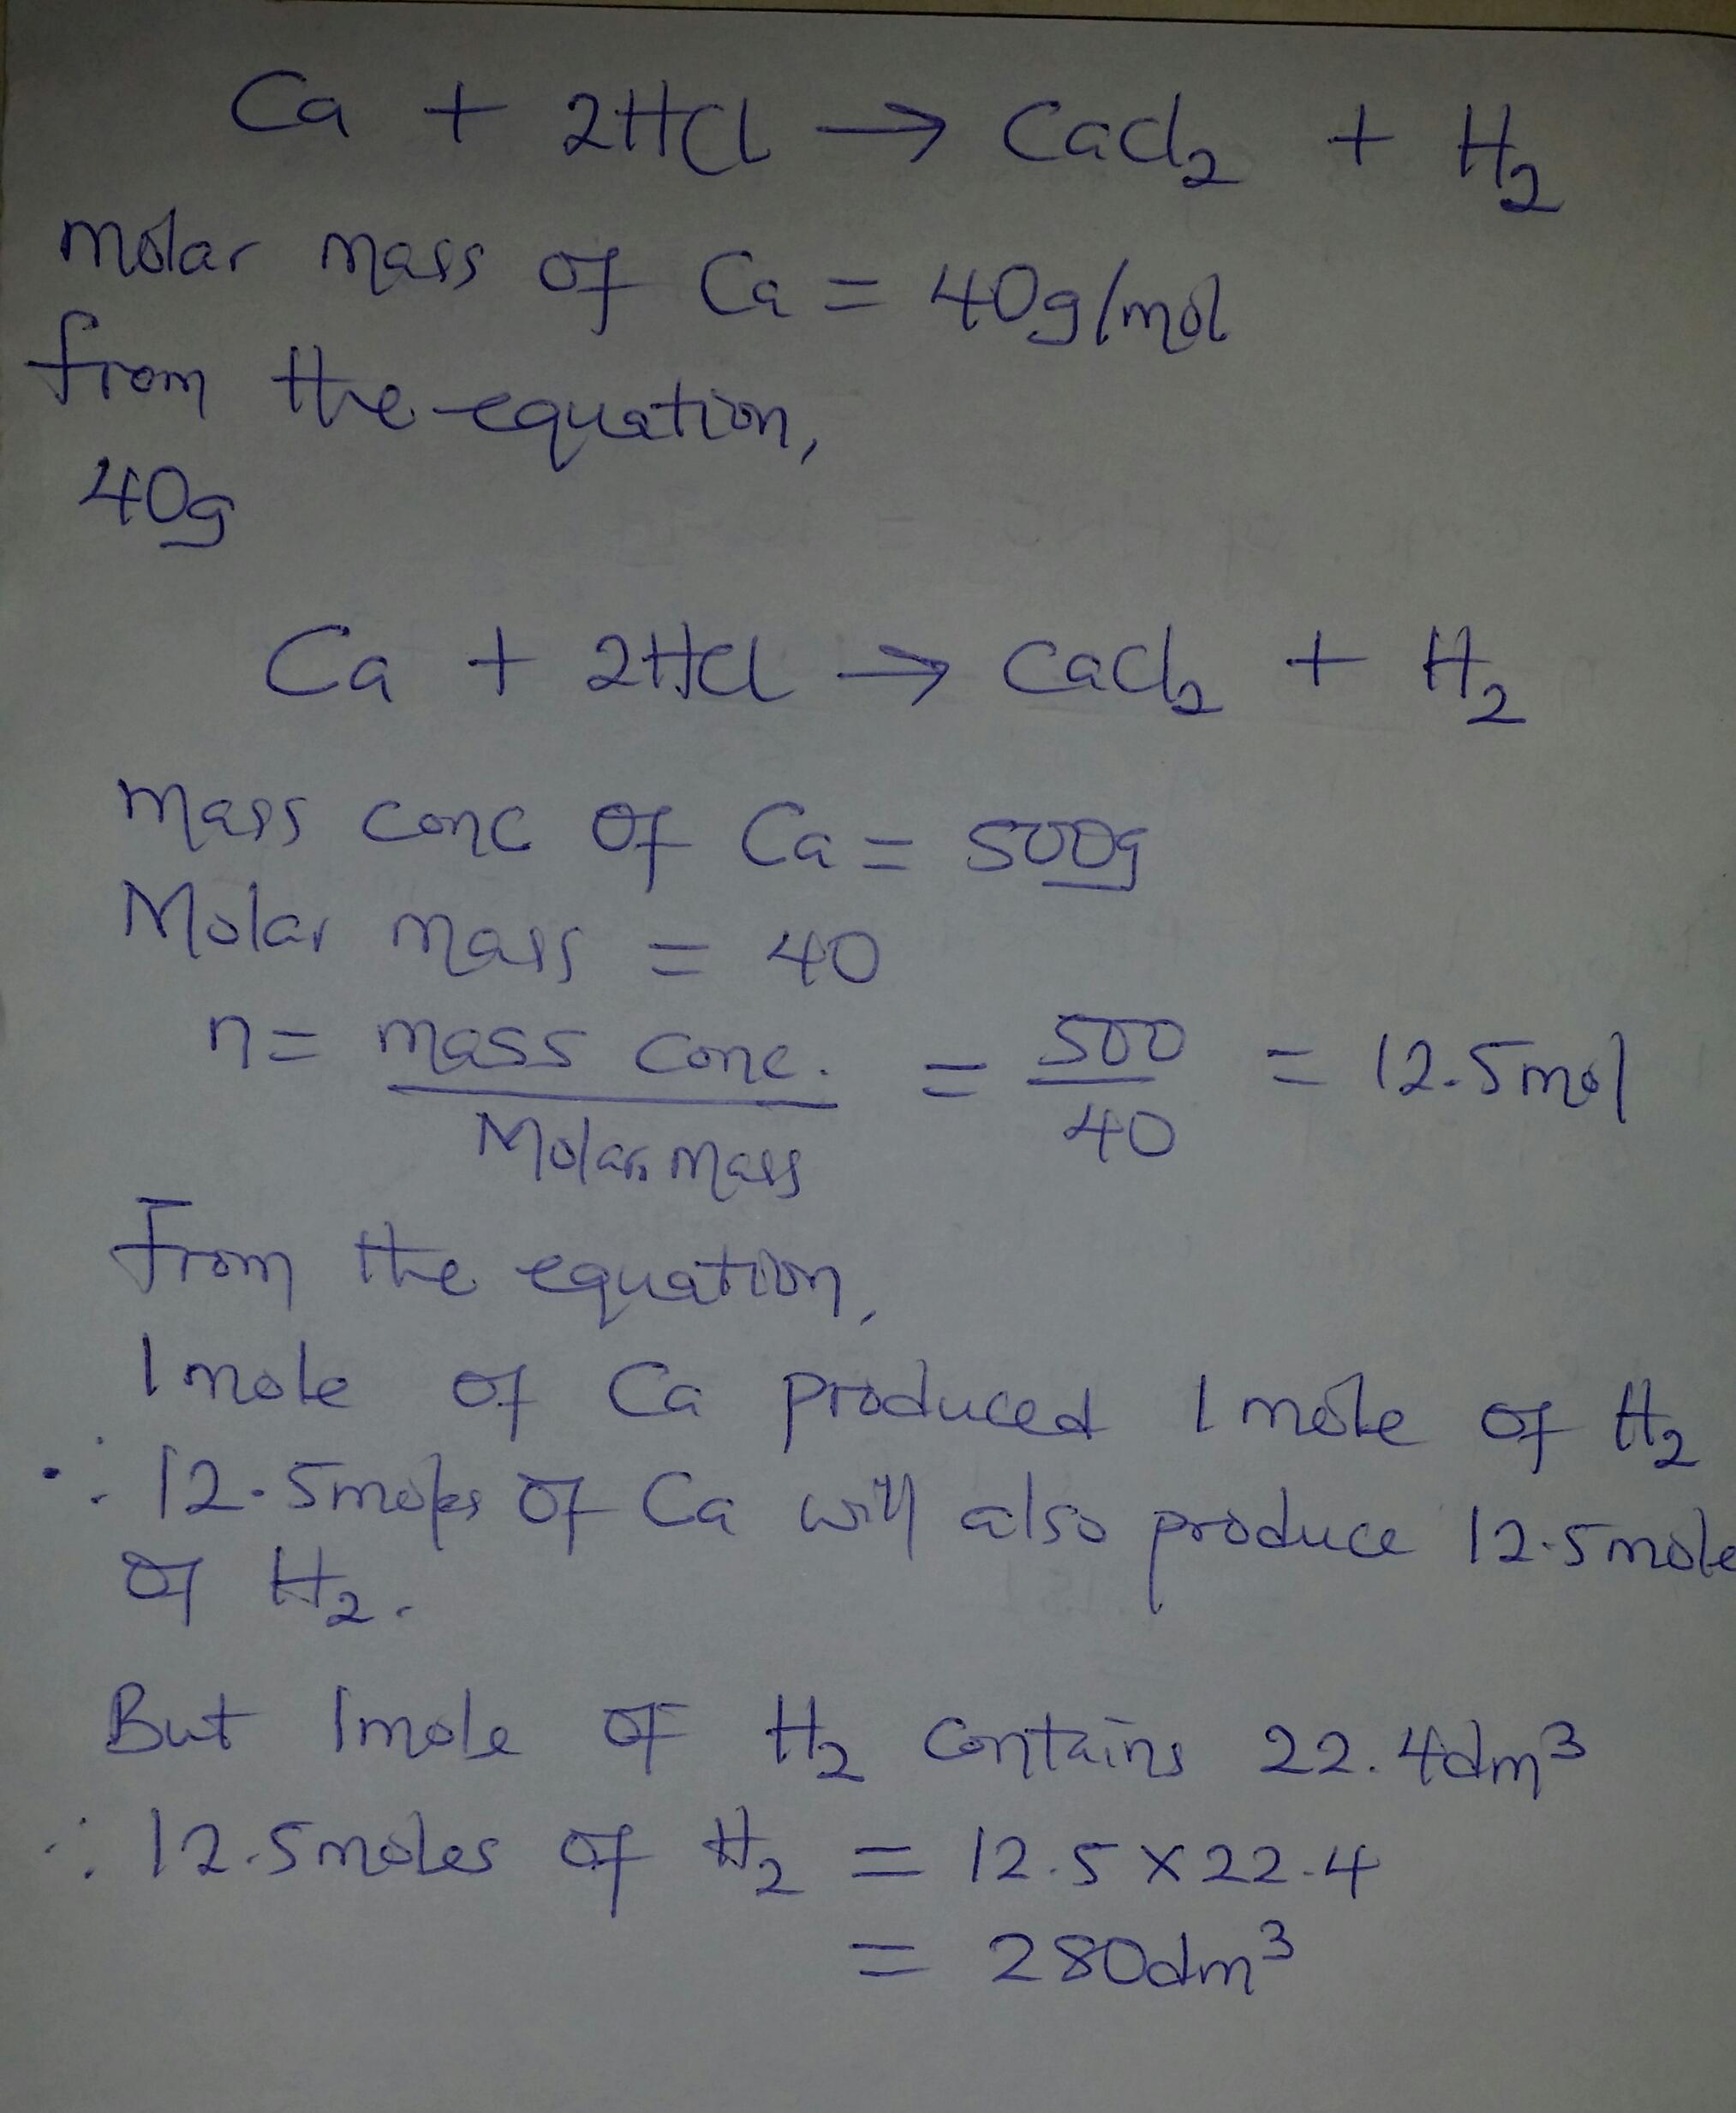 Ca + 2HCl → CaCl₂ + H₂
Molar mass of Ca = 40g/mol
from the equation,
40g
Ca + 2HCl → CaCl₂ + H₂
Mass conc of Ca = 500g
Molar mass = 40
n = mass conc. / Molar mass = 500/40 = 12.5mol
From the equation,
1 mole of Ca produced 1 mole of H₂
∴ 12.5moles of Ca will also produce 12.5mole
of H₂.
But 1mole of H₂ contains 22.4dm³
∴ 12.5moles of H₂ = 12.5 × 22.4
= 280dm³